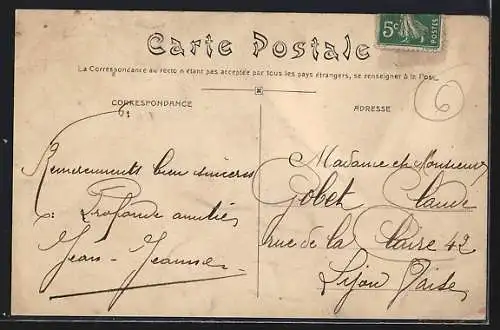 Carte Postale
La Correspondance au recto n'étant pas acceptée par tous les pays étrangers, se renseigner à la Poste
5c
POSTES
6
CORRESPONDANCE
ADRESSE
Remerciements bien sincères
Profonde amitié
Jean - Jeanne
Madame et Monsieur
Gobet Claude
rue de la Claire 42
Lyon Vaise